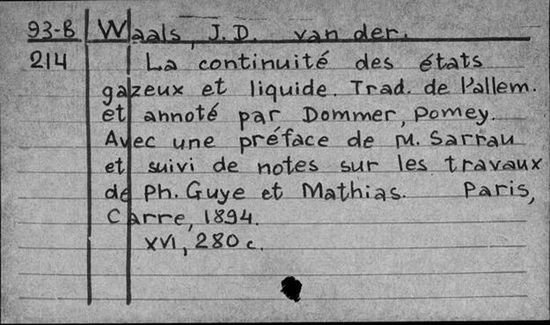 93-B Waals, J.D. van der.
214 La continuité des états
gazeux et liquide. Trad. de l'allem.
et annoté par Dommer, Pomey.
Avec une préface de M. Sarrau
et suivi de notes sur les travaux
de Ph. Guye et Mathias. Paris,
Carre, 1894.
XVI, 280 c.